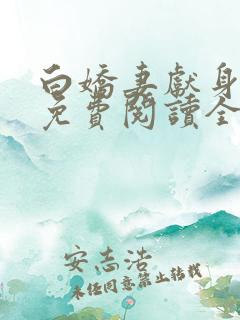 白嬌妻獻身
免費閱讀全
安志浩
未经同意禁止转载